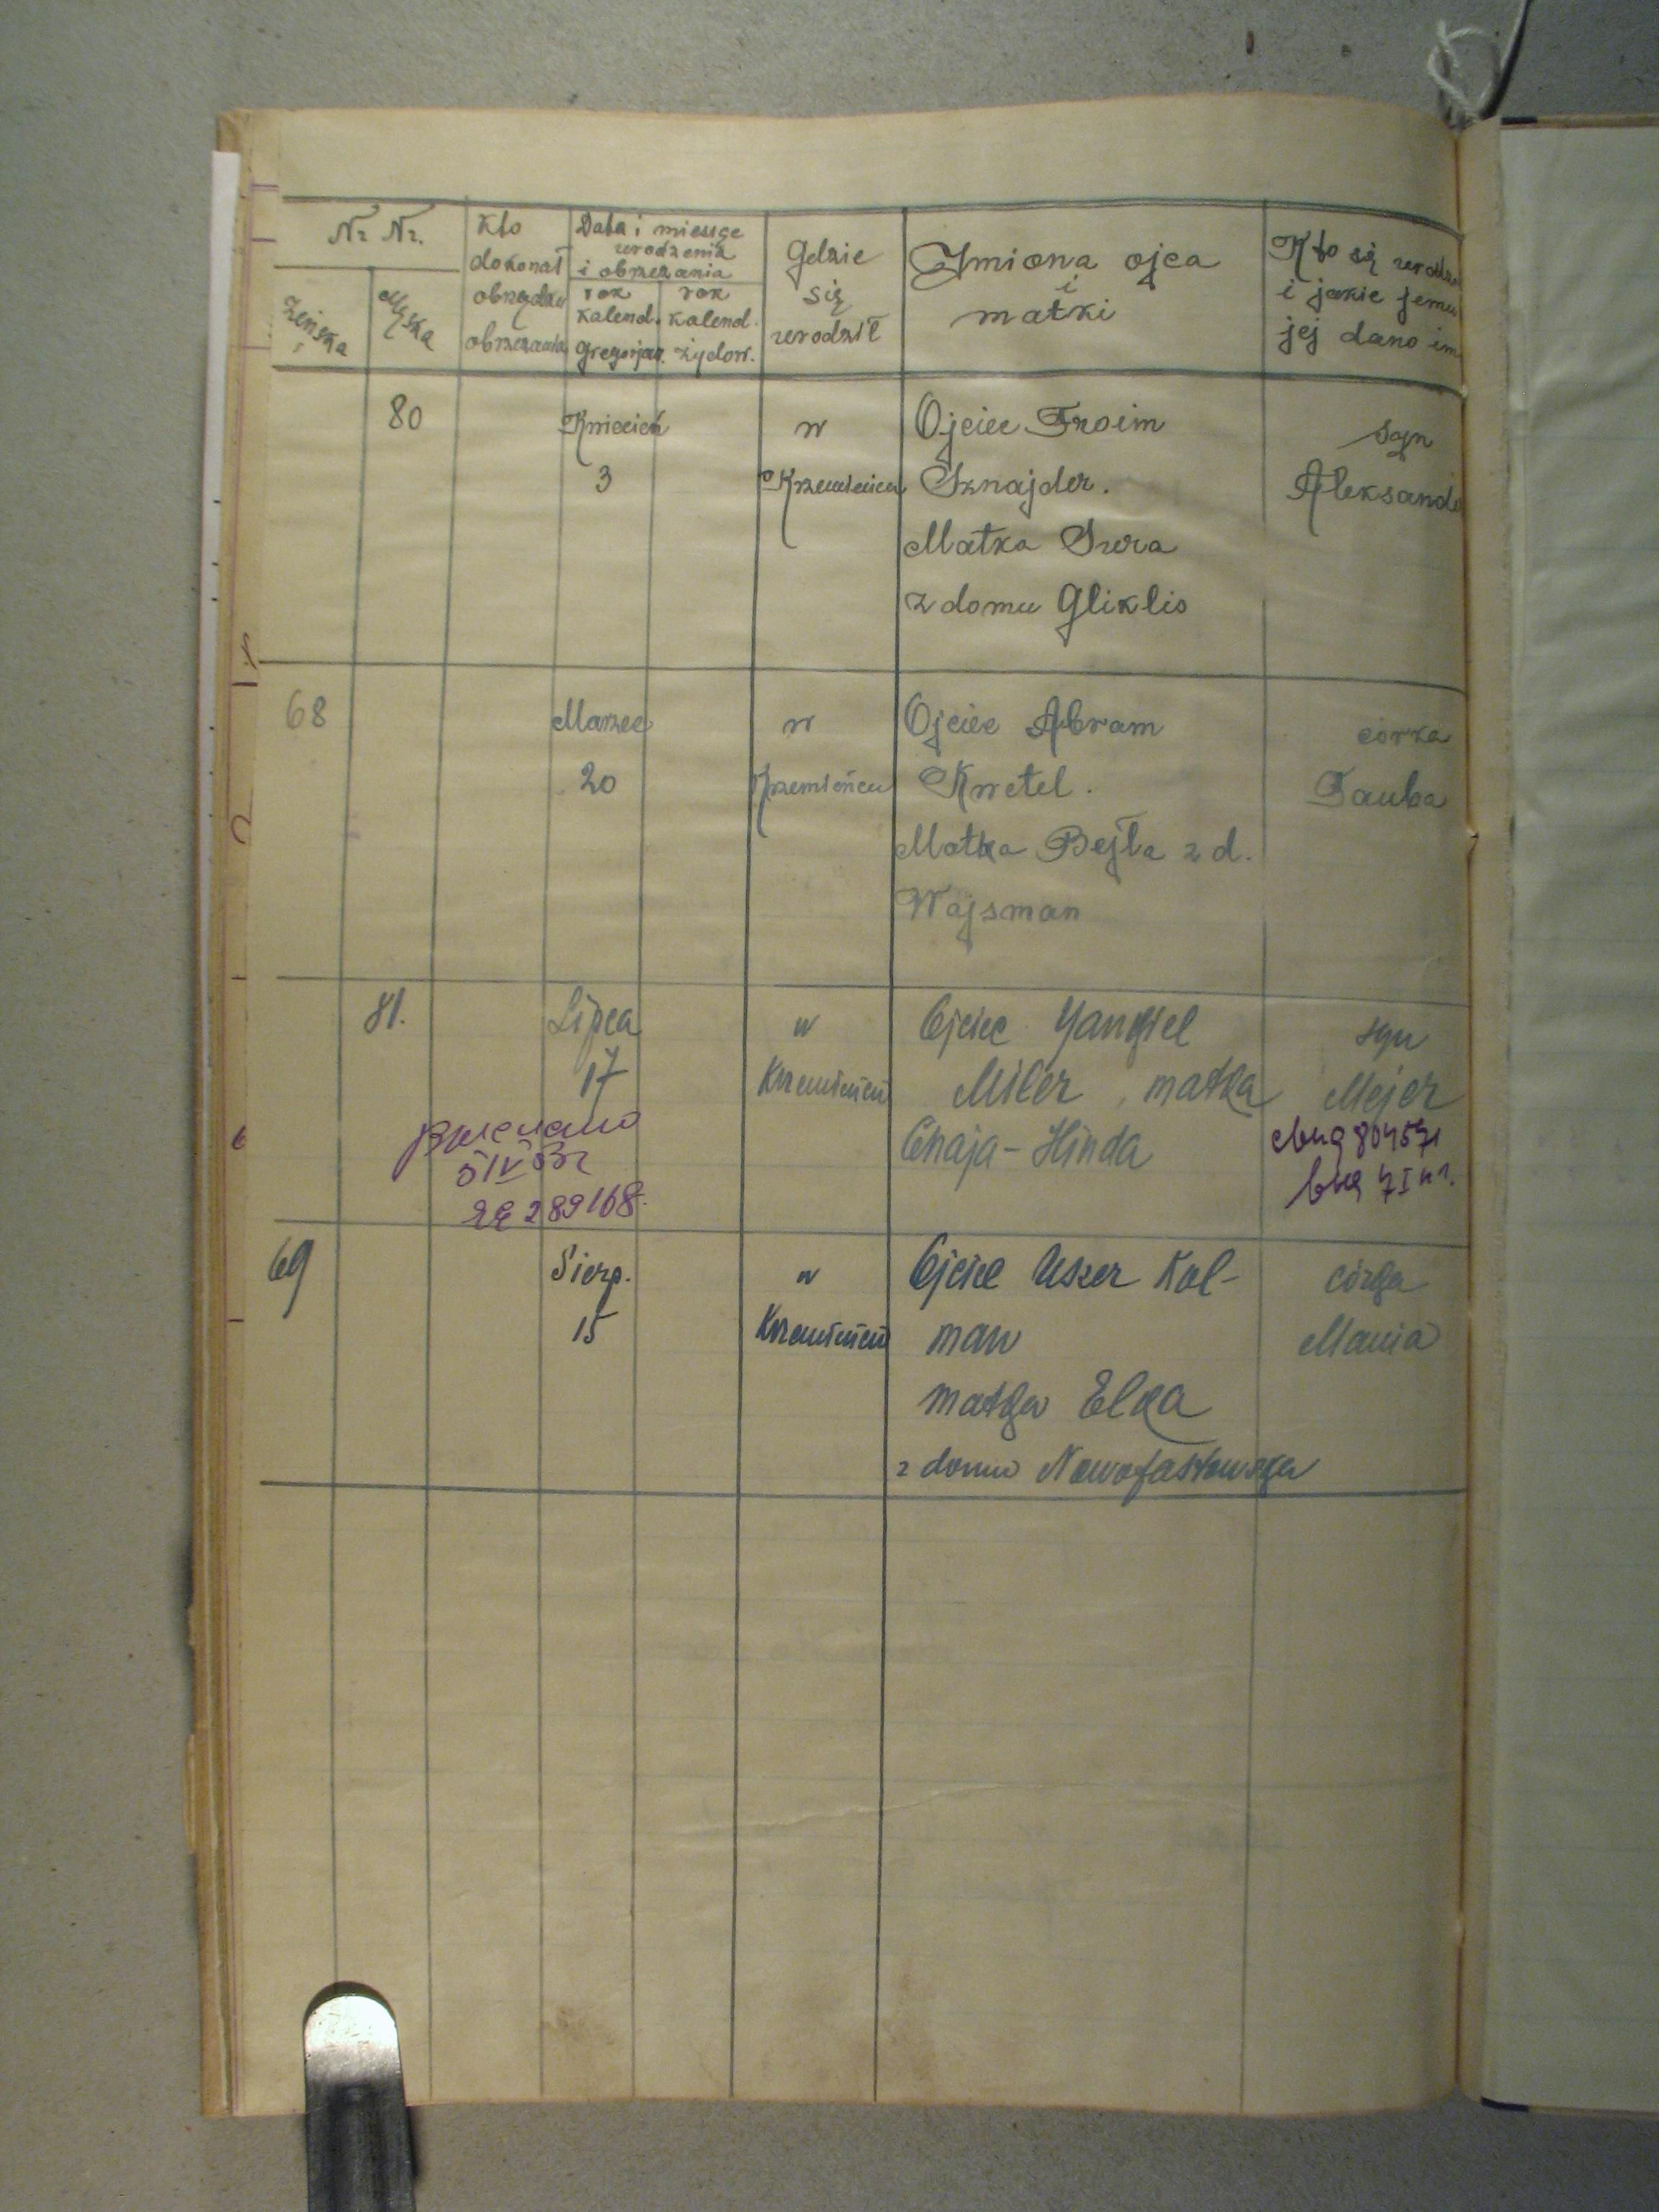 Nr Nr.
Żeńska
Męska
Kto
dokonał
obrządku
obrzezania
Data i miesiąc
urodzenia
i obrzezania
rok
kalend.
gregorjan.
rok
kalend.
żydow.
Gdzie
się
urodził
Imiona ojca
i
matki
Kto się urodził
i jakie jemu
jej dano im
80
Kwiecień
3
w
Krzemieńcu
Ojciec Froim
Sznajder.
Matka Sura
z domu Gliklis
syn
Aleksander
68
Marzec
20
w
Krzemieńcu
Ojciec Abram
Kwetel.
Matka Bejła z d.
Wajsman
córka
Tauba
81.
Lipca
17
w
Krzemieńcu
Ojciec Yankiel
Miler, matka
Chaja-Hinda
syn
Mejer
5 IV 53г
289168
804571
69
Sierp.
15
w
Krzemieńcu
Ojciec Uszer Kal-
man
matka Elka
z domu Nowofastowska
córka
Mania